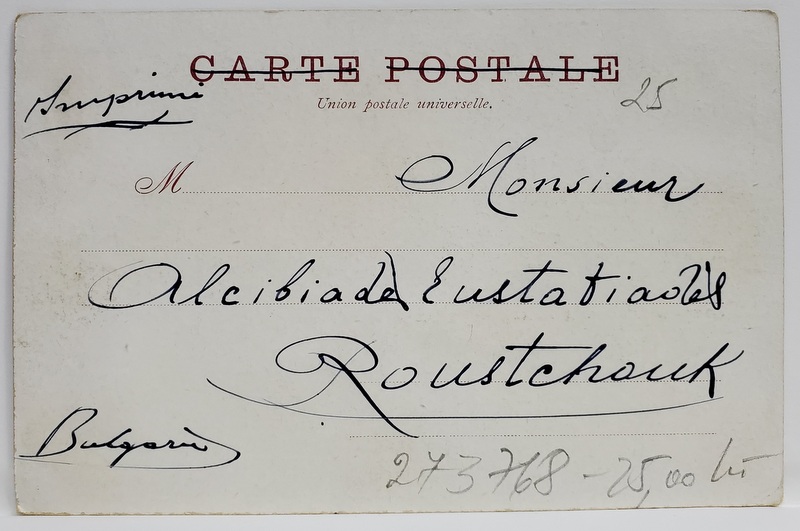 CARTE POSTALE
Imprimé
Union postale universelle.
25
M Monsieur
Alcibiadès Eustatiadès
Roustchouk
Bulgarie
273768 - 25,00 lei